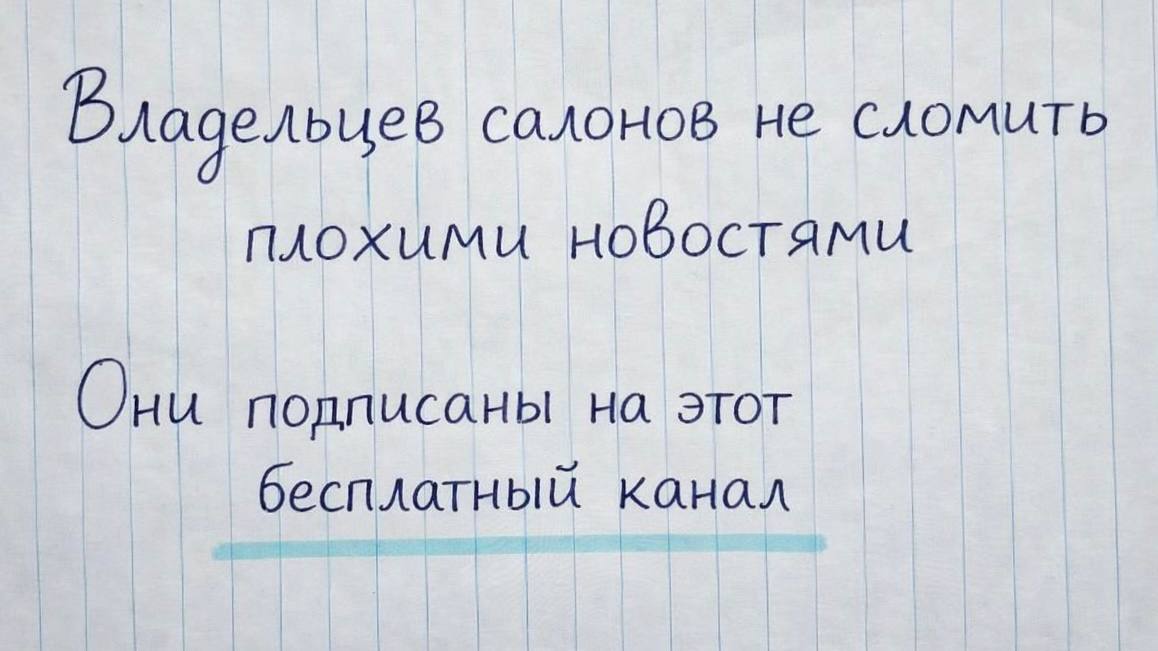 Владельцев салонов не сломить
плохими новостями
Они подписаны на этот
бесплатный канал